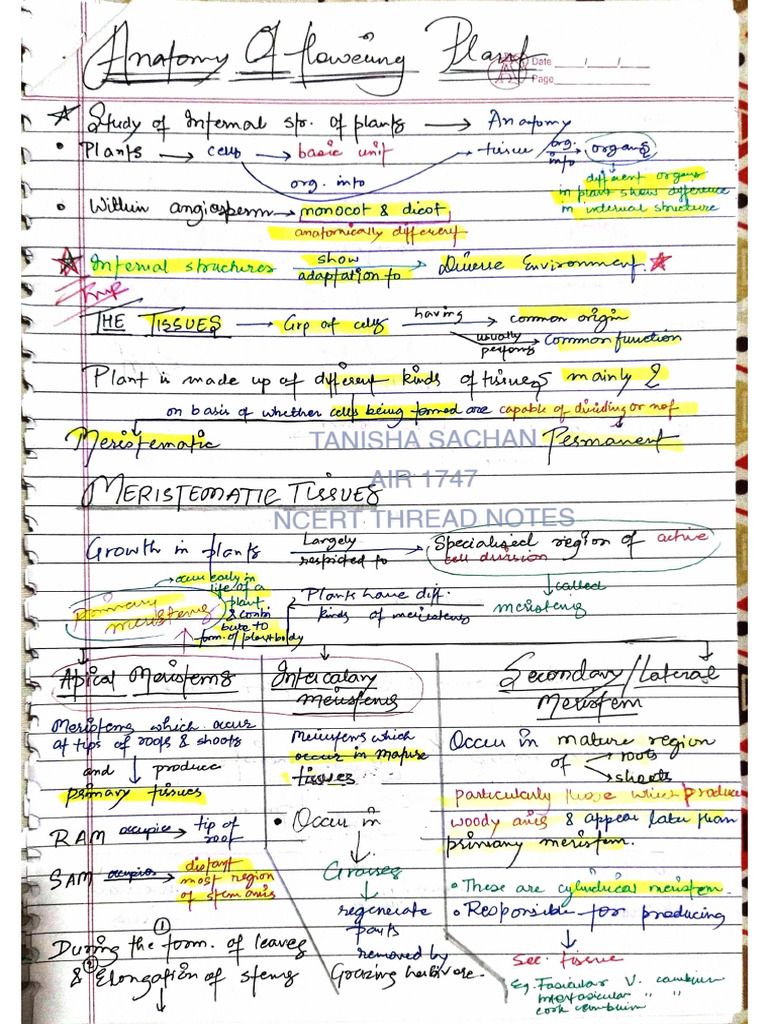 Anatomy Of flowering Plant
Date / /
Page
Study of Internal str. of plants → Anatomy
• Plants → cells → basic unit → tissue / org. into → organs
org. into
different organs
in plant show difference
in internal structure
• Within angiosperm → monocot & dicot
anatomically different
Internal structures show adaptation to → Diverse Environment.
Imp
THE TISSUES → Grp of cells having → common origin
usually performs → Common function
Plant is made up of different kinds of tissues mainly 2
on basis of whether cells being formed are capable of dividing or not
Meristematic Permanent
TANISHA SACHAN
AIR 1747
NCERT THREAD NOTES
MERISTEMATIC TISSUES
Growth in plants Largely restricted to → Specialised region of active
cell division
called
meristems
Plants have diff.
kinds of meristems
primary meristems
occur early in
life of a
plant
& contri
bute to
form. of plantbody
Apical Meristems
Meristems which occur
at tips of roots & shoots
and produce
primary tissues
RAM occupies → tip of
root
SAM occupies → distant
most region
of stem axis
During the ① form. of leaves
& ② Elongation of stems
Intercalary
meristems
Meristems which
occur in mature
tissues
• Occur in
Grasses
regenerate
parts
removed by
Grazing herbivore.
Secondary/Lateral
Meristem
Occur in mature region
of → roots
→ shoots
particularly those which produce
woody axis & appear later than
primary meristem.
• These are cylindrical meristem.
• Responsible for producing
Sec. tissue
Eg. Fasicular V. cambium
interfasicular " "
cork cambium